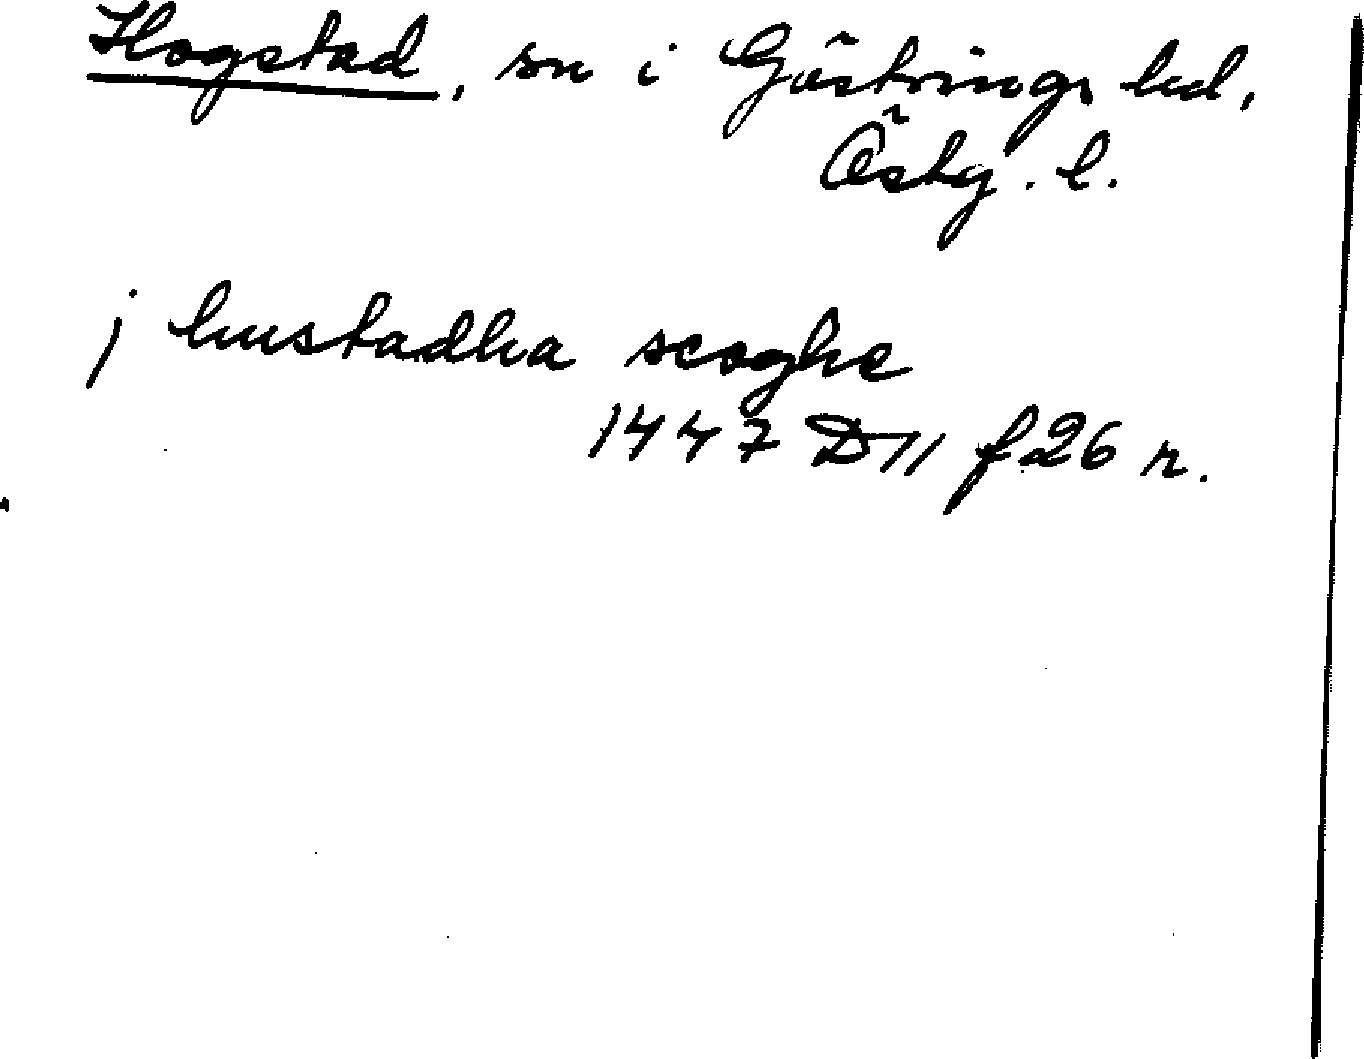 Hogstad, sn i Göstrings hd,
Östg. l.
j hustadha scoghe
1447 D11 f26 r.